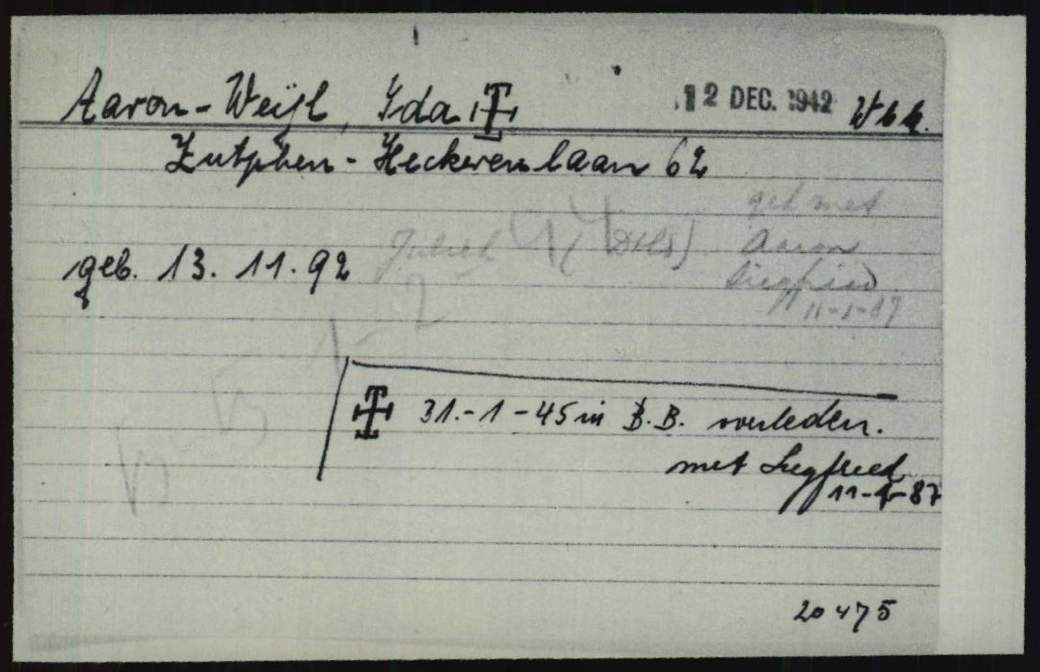 Aaron-Weijl, Ida 12 DEC. 1942 Wbk.
Zutphen - Heckerenlaan 62
geh met
Aaron
geb. 13. 11. 92
Siegfried
11-1-87
31.-1-45 in B.B. overleden.
met Siegfried
11-1-87
20475